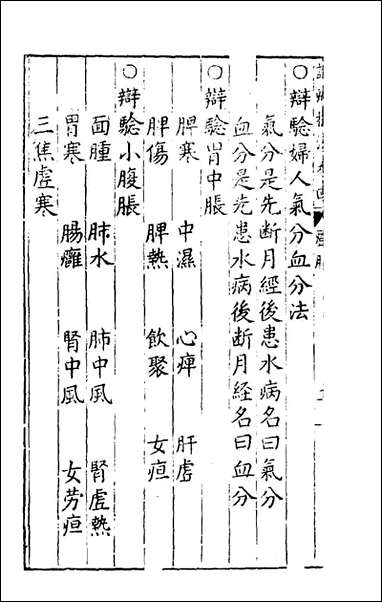 ○辯騐婦人氣分血分法
氣分是先断月經後患水病名曰氣分
血分是先患水病後断月経名曰血分
○辯騐胃中脹
脾寒 中濕 心痺 肝虛
脾傷 脾熱 飲聚 女疸
○辯騐小腹脹
面腫 肺水 肺中風 腎虛熱
胃寒 腸癰 腎中風 女劳疸
三焦虛寒